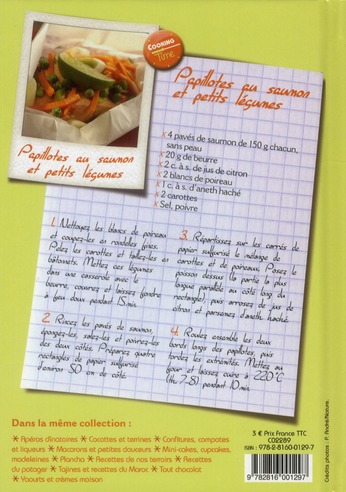 COOKING
Time
Papillotes au saumon
et petits légumes
Papillotes au saumon
et petits légumes
x 4 pavés de saumon de 150 g chacun,
sans peau
x 20 g de beurre
x 2 c. à s. de jus de citron
x 2 blancs de poireau
x 1 c. à s. d'aneth haché
x 2 carottes
x Sel, poivre
1. Nettoyez les blancs de poireau
et coupez-les en rondelles fines.
Pelez les carottes et taillez-les en
bâtonnets. Mettez ces légumes
dans une casserole avec le
beurre, couvrez et laissez fondre
à feu doux pendant 15 min.
2. Rincez les pavés de saumon,
épongez-les, salez-les et poivrez-les
des deux côtés. Préparez quatre
rectangles de papier sulfurisé
d'environ 30 cm de côté.
3. Répartissez sur les carrés de
papier sulfurisé le mélange de
carottes et de poireaux. Posez le
poisson dessus (la partie la plus
longue parallèle au côté long du
rectangle), puis arrosez de jus de
citron et parsemez d'aneth haché.
4. Roulez ensemble les deux
bords longs des papillotes, puis
tordez les extrémités. Mettez au
four et laissez cuire à 220°C
(th. 7-8) pendant 10 min.
Dans la même collection :
* Apéros dînatoires * Cocottes et terrines * Confitures, compotes
et liqueurs * Macarons et petites douceurs * Mini-cakes, cupcakes,
madeleines * Plancha * Recettes de nos terroirs * Recettes
du potager * Tajines et recettes du Maroc * Tout chocolat
* Yaourts et crèmes maison
5 € Prix France TTC
C02289
ISBN : 978-2-8160-0129-7
9 782816 001297
Crédits photos : P. André/Nature.